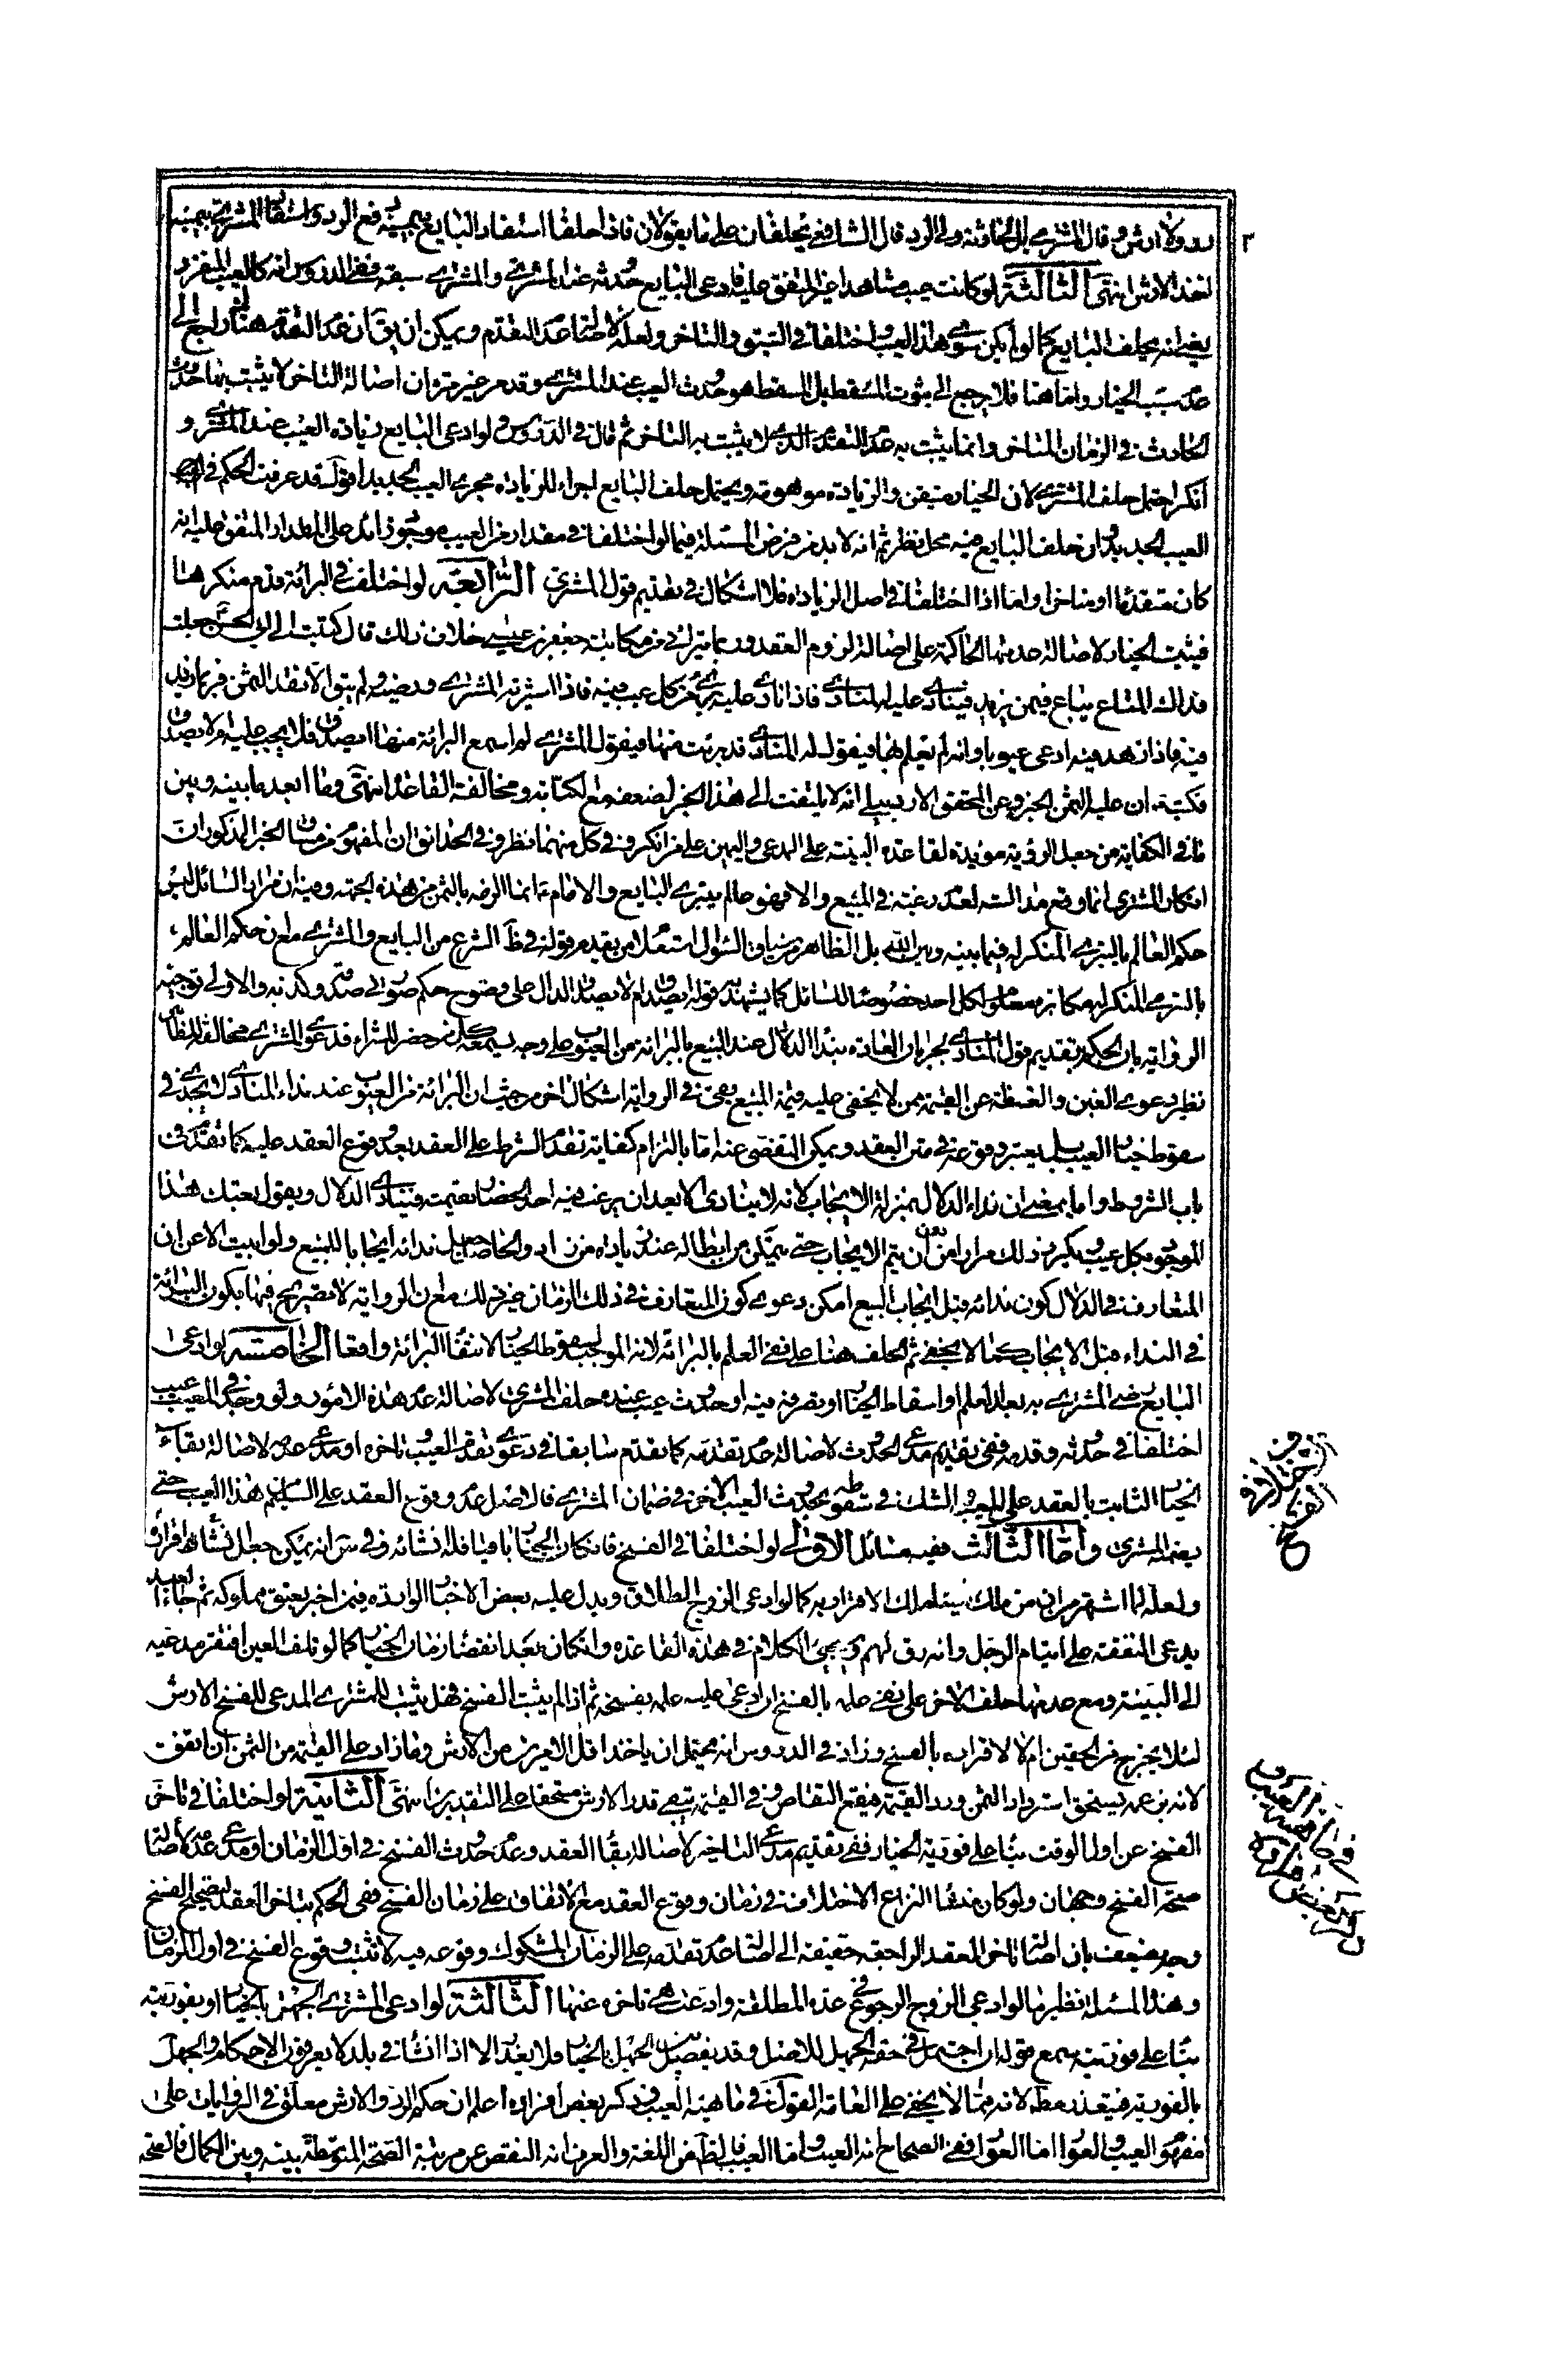 رد ولا ارش و قال المشتري بل كلاهما حادث ولي الرد قال الشافعي يحلفان على ما يقولان فاذا حلفا استفاد البايع بيمينه دفع الرد و استفاد المشتري بيمينه
اخذ الارش انتهى الثالثة لو كانت عيب مشاهد غير المتفق عليه فادعى البايع حدثه عند المشتري والمشتري سبقه ففي الدروس انه كالعيب المنفرد
يعني انه يحلف البايع كما لو لم يكن سوى هذا العيب و اختلفا في السبق و التاخر و لعله لاصالة عدم التقدم و يمكن ان يق ان عدم التقدم هناك راجع الى
عدم سبب الخيار و اما هنا فلا يرجع الى ثبوت المسقط بل المسقط هو حدوث العيب عند المشتري و قد مر غير مرة ان اصالة التاخر لا يثبت بها حدوث
الحادث في الزمان المتاخر و انما يثبت به عدم التقدم الذي لا يثبت به التاخر ثم قال في الدروس و لو ادعى البايع زيادة العيب عند المشتري و
انكر احتمل حلف المشتري لان الخيار متيقن و الزيادة موهومة و يحتمل حلف البايع اجراء للزيادة مجرى العيب الجديد اقول قد عرفت الحكم في
العيب الجديد و ان حلف البايع فيه محل نظر ثم انه لا بد من فرض المسئلة فيما لو اختلفا في مقدار من العيب موجود زائد على المقدار المتفق عليه انه
كان متقدما او متاخرا و اما اذا اختلفا في اصل الزيادة فلا اشكال في تقديم قول المشتري الرابعة لو اختلفا في البرائة قدم منكرها
فيثبت الخيار لاصالة عدمها الحاكمة على اصالة لزوم العقد و ربما يترائى من مكاتبة جعفر بن عيسى خلاف ذلك قال كتبت الى ابي الحسن جعلت
فداك المتاع يباع فيمن يزيد فينادى عليه المنادي فاذا نادى عليه برئ من كل عيب فيه فاذا اشتريه المشتري و رضيه و لم يبق الا نقد الثمن فربما زهد
فيه فاذا زهد فيه ادعى عيوبا و انه لم يعلم بها فيقول له المنادي قد برئت منها فيقول المشتري لم اسمع البرائة منها ايصدق فلا يجب عليه او لا يصدق
فكتب ان عليه الثمن الخبر و عن المحقق الاردبيلي انه لا يلتفت الى هذا الخبر لضعفه مع الكتابة و مخالفة القاعدة انتهى و ما ابعد ما بينه و بين
ما في الكفاية من جعل الرواية مؤيدة لقاعدة البينة على المدعي و اليمين على من انكر و في كل منهما نظر و في الحدائق ان المفهوم من سياق الخبر المذكور ان
انكار المشتري انما وقع مدالسة لعدم رغبته في المبيع و الا فهو عالم بتبري البايع و الامام انما الزمه بالثمن من هذه الجهة و فيه ان مراد السائل ليس
حكم العالم بالتبري المنكر له فيما بينه و بين الله بل الظاهر من سياق السؤال استعلام من يقدم قوله في ظاهر الشرع من البايع و المشتري مع ان حكم العالم
بالتبري المنكر له مكابرة معلوم لكل احد خصوصا للسائل كما يشهد به قوله ايصدق ام لا يصدق الدال على وضوح حكم صورتي صدقه و كذبه و الاولى توجيه
الرواية بان الحكم بتقديم قول المنادي لجريان العادة بنداء الدلال عند البيع بالبرائة من العيوب على وجه يسمعه كل من حضر للشراء فدعوى المشتري مخالفة للظاهر
نظير دعوى الغبن و الغفلة عن القيمة ممن لا يخفى عليه قيمة المبيع بقي في الرواية اشكال اخر من حيث ان البرائة من العيوب عند نداء المنادي لا يجدي في
سقوط خيار العيب بل يعتبر وقوعه في متن العقد و يمكن التفصي عنه اما بالتزام كفاية تقدم الشرط على العقد بعد وقوع العقد عليه كما تقدم في
باب الشروط و اما بمعنى ان نداء الدلال بمنزلة الايجاب لانه لا ينادي الا بعد ان يرغب فيه احد الحضار بقيمة فينادي الدلال و يقول بعتك هذا
الموجود بكل عيب و يكرر ذلك مرارا من دون ان يتم الايجاب حتى يتمكن من ابطاله عند زيادة من زاد و الحاصل جعل ندائه ايجابا للمبيع و لو ابيت الا عن ان
المتعارف في الدلال كون ندائه قبل ايجاب البيع امكن دعوى كون المتعارف في ذلك الزمان غير ذلك مع ان الرواية لا تصريح فيها بكون البرائة
في النداء قبل الايجاب كما لا يخفى ثم الحلف هنا على نفي العلم بالبرائة لانه الموجب لسقوط الخيار لا انتفاء البرائة واقعا الخامسة لو ادعى
البايع رضى المشتري به بعد العلم او اسقاط الخيار او تصرفه فيه او حدوث عيب عنده حلف المشتري لاصالة عدم هذه الامور و لو وجد في المعيب عيب
اختلفا في حدوثه و قدمه ففي تقديم مدعي الحدوث لاصالة عدم تقدمه كما تقدم سابقا في دعوى تقدم العيوب و تاخره او مدعي عدمه لاصالة بقاء
الخيار الثابت بالعقد على المعيب و الشك في سقوطه بحدوث العيب الاخر في ضمان المشتري فالاصل عدم وقوع العقد على السليم من هذا العيب حتى
يضمنه المشتري و اما الثالث ففيه مسائل الاولى لو اختلفا في الفسخ فان كان الخيار باقيا فله انشائه و في س انه يمكن جعل انشائه اقرارا
و لعله لما اشتهر من ان من ملك شيئا ملك الاقرار به كما لو ادعى الزوج الطلاق و يدل عليه بعض الاخبار الواردة فيمن اخبر بعتق مملوكه ثم جاء العبد
يدعي النفقة على ايتام الرجل و انه رق لهم و يجيئ الكلام في هذه القاعدة و ان كان بعد انقضاء زمان الخيار كما لو تلف العين افتقر مدعيه
الى البينة و مع عدمها حلف الاخر على نفي علمه بالفسخ ان ادعى عليه علمه بفسخه ثم اذا لم يثبت الفسخ فهل يثبت للمشتري المدعي للفسخ الارش
لئلا يخرج من الحقين ام لا لاقراره بالفسخ و زاد في الدروس انه يحتمل ان ياخذ اقل الامرين من الارش و ما زاد على القيمة من الثمن ان اتفق
لانه بزعمه يستحق استرداد الثمن و رد القيمة فيقع التقاص في القيمة و يبقى قدر الارش مستحقا على التقديرين انتهى الثانية لو اختلفا في تاخر
الفسخ عن اول الوقت بناء على فورية الخيار ففي تقديم مدعي التاخير لاصالة بقاء العقد و عدم حدوث الفسخ في اول الزمان او مدعي عدمه لاصالة
صحة الفسخ وجهان و لو كان منشأ النزاع الاختلاف في زمان وقوع العقد مع الاتفاق على زمان الفسخ ففي الحكم بتاخر العقد ليصح الفسخ
وجه يضعف بان اصالة تاخر العقد الراجعة حقيقة الى اصالة عدم تقدمه على الزمان المشكوك وقوعه فيه لا تثبت وقوع الفسخ في اول الزمان
و هذا المسئلة نظير ما لو ادعى الزوج الرجوع في عدة المطلقة و ادعت هي تاخره عنها الثالثة لو ادعى المشتري الجهل بالخيار او بفوريته
بناء على فوريته سمع قوله ان احتمل في حقه الجهل للاصل و قد يفصل بين الجهل بالخيار فلا يعذر الا اذا نشأ في بلد لا يعرفون الاحكام و الجهل
بالفورية فيعذر مطلقا لانه مما لا يخفى على العامة القول في ماهية العيب و ذكر بعض افراده اعلم ان حكم الرد و الارش معلق في الروايات على
مفهوم العيب و العوار اما العوار ففي الصحاح انه العيب و اما العيب فالظاهر من اللغة و العرف انه النقص عن مرتبة الصحة المتوسطة بينه و بين الكمال فالصحة